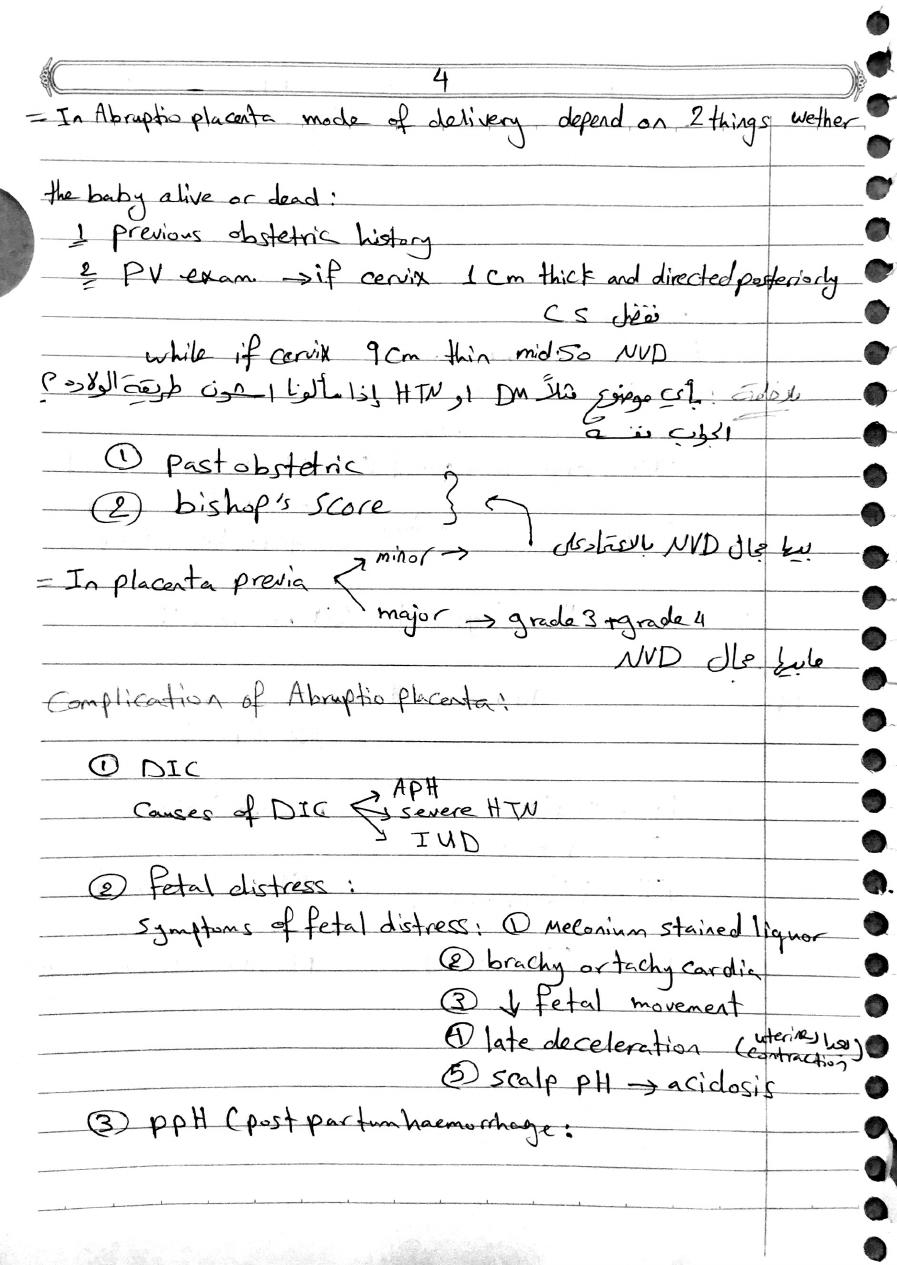 4
= In Abruptio placenta mode of delivery depend on 2 things wether
the baby alive or dead :
1 previous obstetric history
2 PV exam → if cervix 1 cm thick and directed posteriorly
نفضل CS
while if cervix 9 cm thin mid so NVD
ملاحظة : بأي موضوع مثلاً DM او HTN إذا سألونا اشون طريقة الولادة ؟
الجواب نفسه
① past obstetric
② bishop's score
بيها مجال NVD بالاعتماد على
= In placenta previa
minor →
major → grade 3 + grade 4
مابيها مجال NVD
Complication of Abruptio placenta :
① DIC
Causes of DIC
APH
severe HTN
IUD
② fetal distress :
symptoms of fetal distress : ① Meconium stained liquor
② brachy or tachy cardia
③ ↓ fetal movement
④ late deceleration (بعد uterine contraction)
⑤ scalp pH → acidosis
③ ppH (post partum haemorrhage :